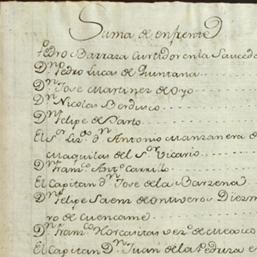 Suma de enfrente
Pedro Barraza Curtidor en la Sauceda
Dn Pedro Lucas de Quintana
Dn Jose Martinez de Oyo
Dn Nicolas Berdusco
Dn Felipe de Parto
El Sor Lizdo dn Antonio Manzanera de
Maquilas del Sor Vicario
Dn Franco Anto Carrillo
El Capitan dn Jose de la Barzena
Dn Felipe Saenz de Ontiveros Diezm
ro de Cuencame
Dn Franco Horcasitas vez de Mexico
El Capitan Dn Juan de la Pedriza e